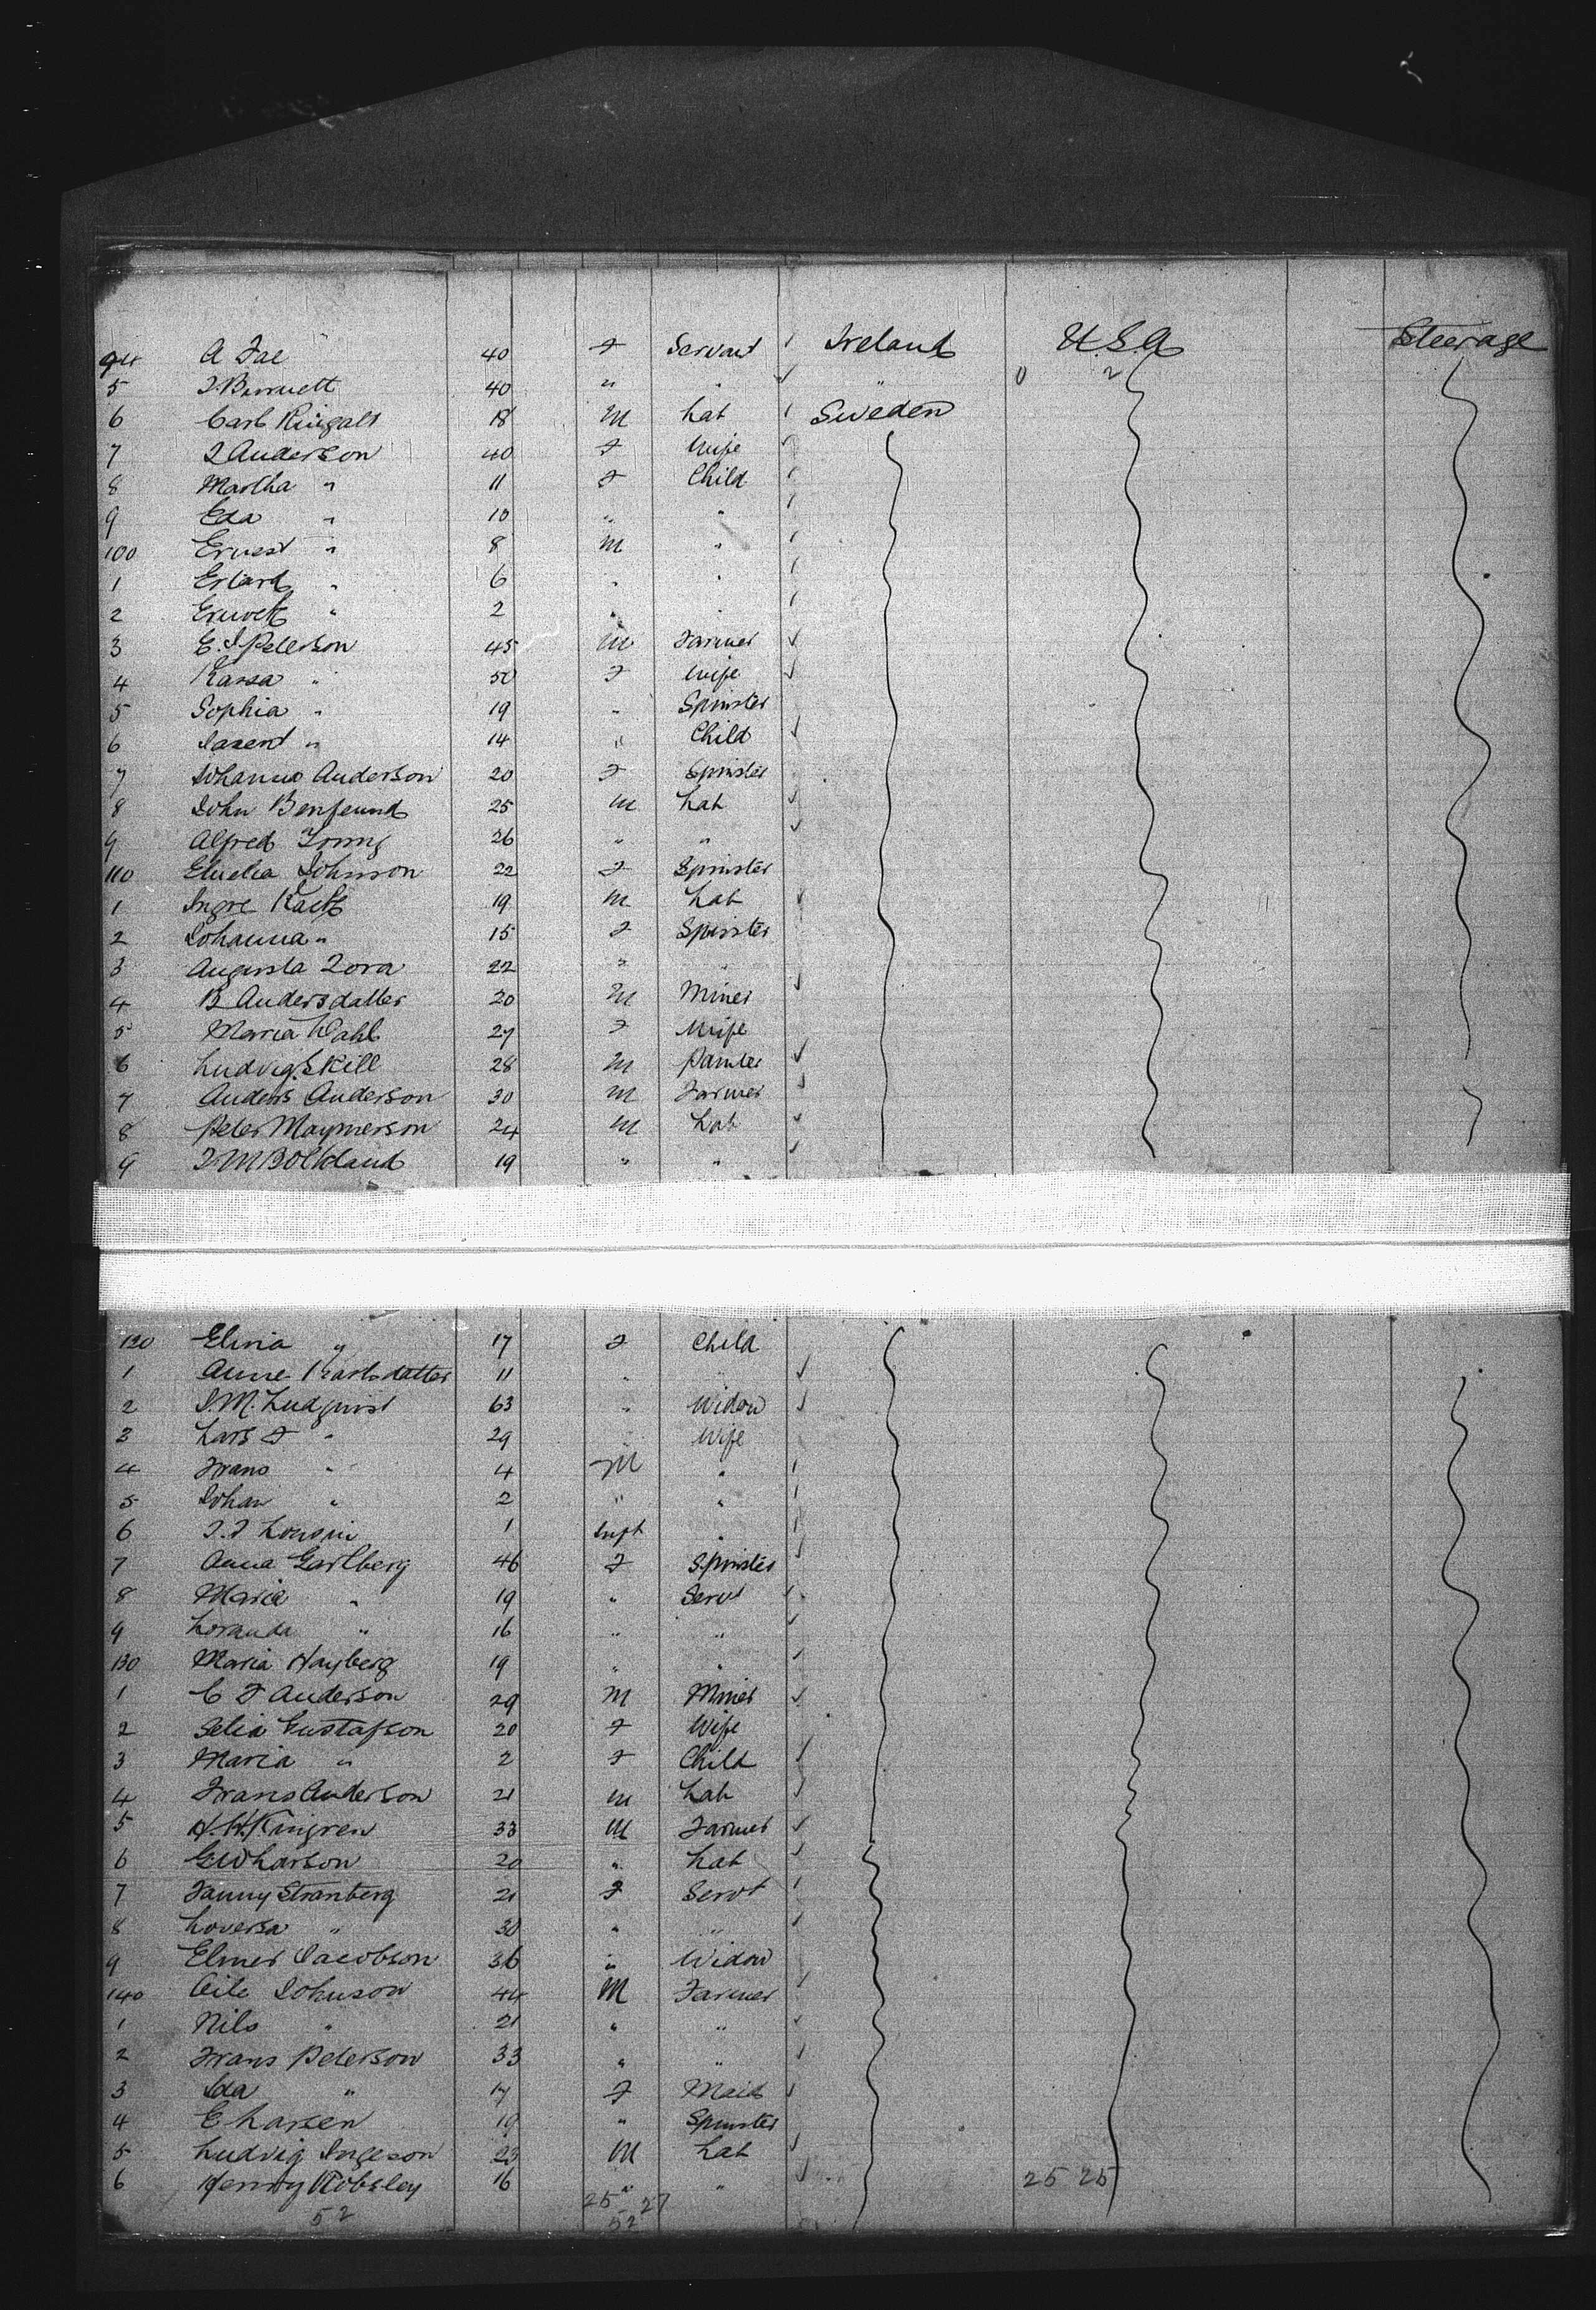 94 A Fae 40 F Servant Ireland U.S.A Steerage
5 J. Burnett 40 " " "
0 2
6 Carl 18 M Lab Sweden
7 J Anderson 40 F Wife
8 Martha " 11 F Child
9 Eda " 10 " "
100 Ernest " 8 M "
1 " 6 " "
2 " 2 " "
3 E. J Peterson 45 M Farmer
4 Kassa " 50 F Wife
5 Sophia " 19 " Spinster
6 " 14 " Child
7 Johanna Anderson 20 F Spinster
8 John 25 M Lab
9 Alfred 26 " "
110 Johnson 22 F Spinster
1 19 M Lab
2 Johanna " 15 F Spinster
3 Augusta 22 " "
4 B Andersdatter 20 M Miner
5 Maria Dahl 27 F Wife
6 Ludvig Skill 28 M Painter
7 Anders Anderson 30 M Farmer
8 Peter 24 M Lab
9 19 " "
120 " 17 F Child
1 Anne Karlsdatter 11 " "
2 63 " Widow
3 Lars F " 29 Wife
4 Frans " 4 M "
5 Johan " 2 " "
6 1 Inft "
7 Anna 46 F Spinster
8 Maria " 19 " Servt
9 " 16 " "
130 Maria Hayberg 19 " "
1 C F Anderson 29 M Miner
2 Selia Gustafson 20 F Wife
3 Maria " 2 F Child
4 Frans Anderson 21 M Lab
5 33 M Farmer
6 20 " Lab
7 Fanny Stranberg 21 F Servt
8 Loversa " 30 " "
9 Elmer Jacobson 36 " Widow
140 Johnson 44 M Farmer
1 Nils " 21 " "
2 Frans Peterson 33 " "
3 Ida " 17 F Maid
4 E Larsen 19 " Spinster
5 Ludvig Ingeson 23 M Lab
6 Henry 16 " "
25 27 25 25
52 52